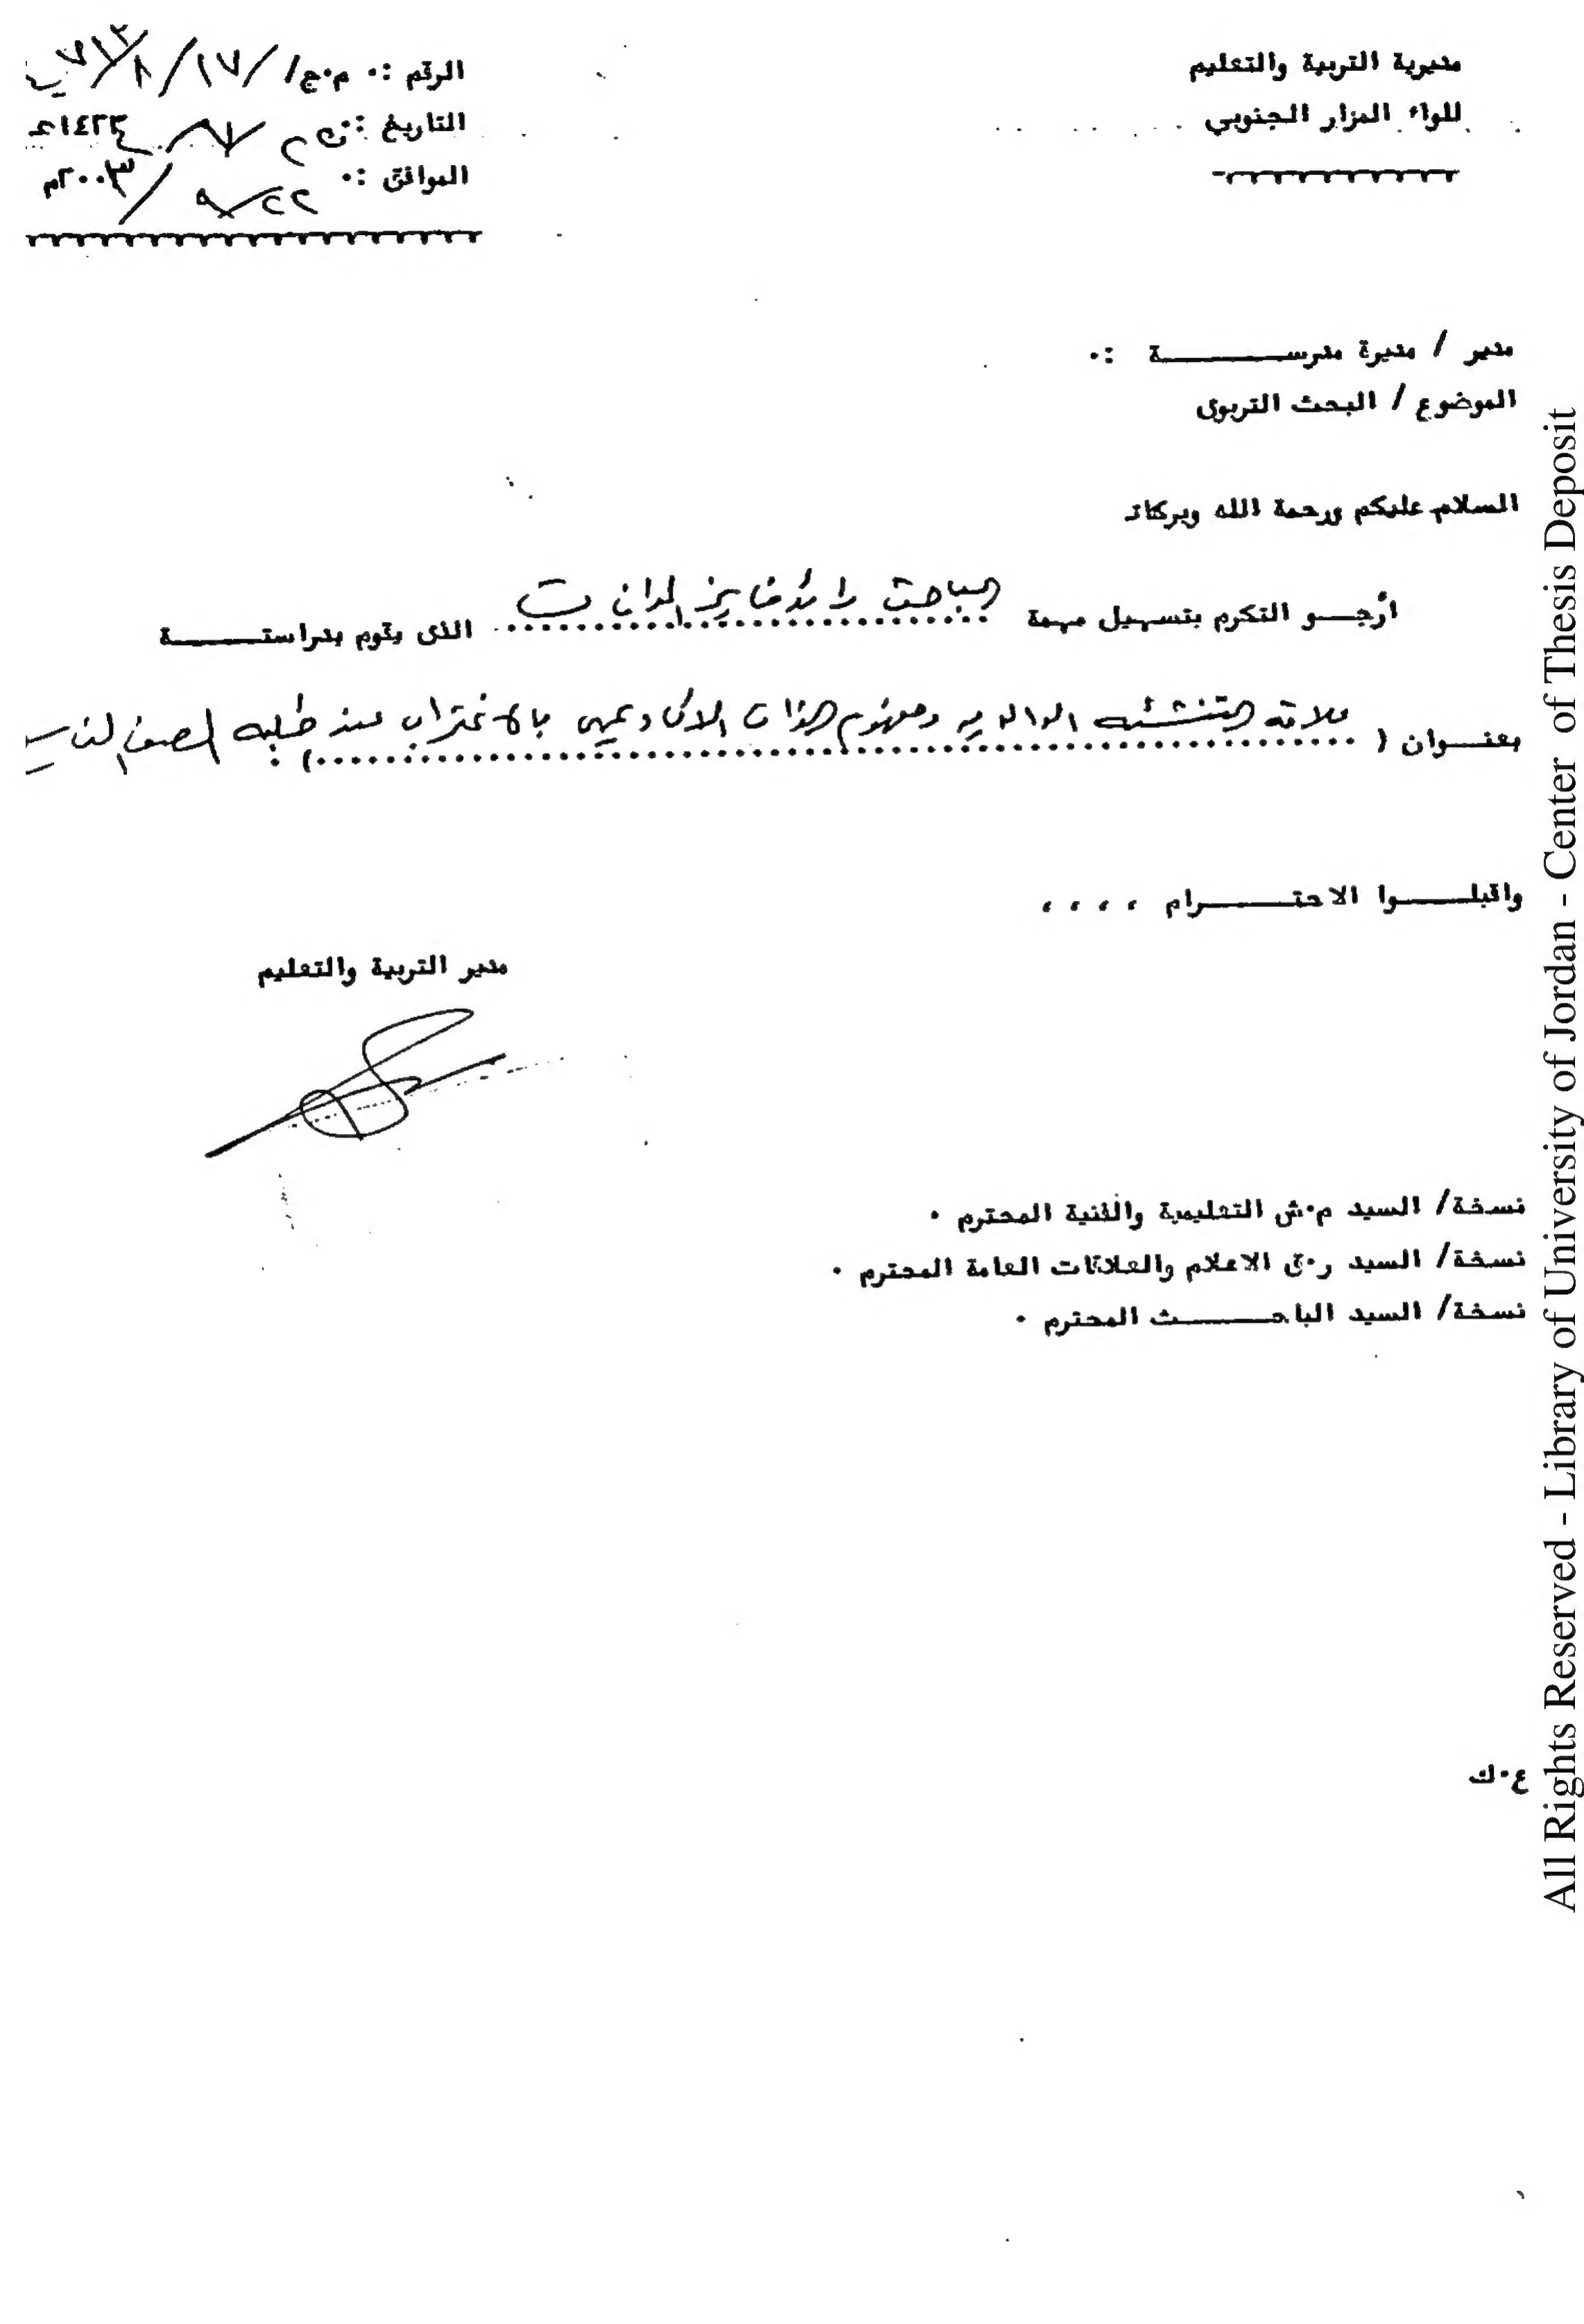 مديرية التربية والتعليم
للواء المزار الجنوبي
الرقم :٠ م٠ج/ ١٧/ ٨/
التاريخ :٠ ١٤٢٤هـ
الموافق :٠ ٢٢/ ٩/ ٢٠٠٣م
مدير / مديرة مدرســـــــــة :٠
الموضوع / البحث التربوى
السلام عليكم ورحمة الله وبركاته
أرجـــو التكرم بتسهيل مهمة الباحث رائد فايز الذى يقوم بدراستـــــــة
بعنـــوان ( علاقة التنشئه الوالديه ومفهوم الذات الاكاديمي بالاغتراب عند طلبه الصف ) .
واقبلـــــوا الاحتـــــــرام ، ، ، ،
مدير التربية والتعليم
نسخة/ السيد م٠ش التعليمية والفنية المحترم ٠
نسخة/ السيد ر٠ق الاعلام والعلاقات العامة المحترم ٠
نسخة/ السيد الباحـــــــث المحترم ٠
ع٠ك
All Rights Reserved - Library of University of Jordan - Center of Thesis Deposit